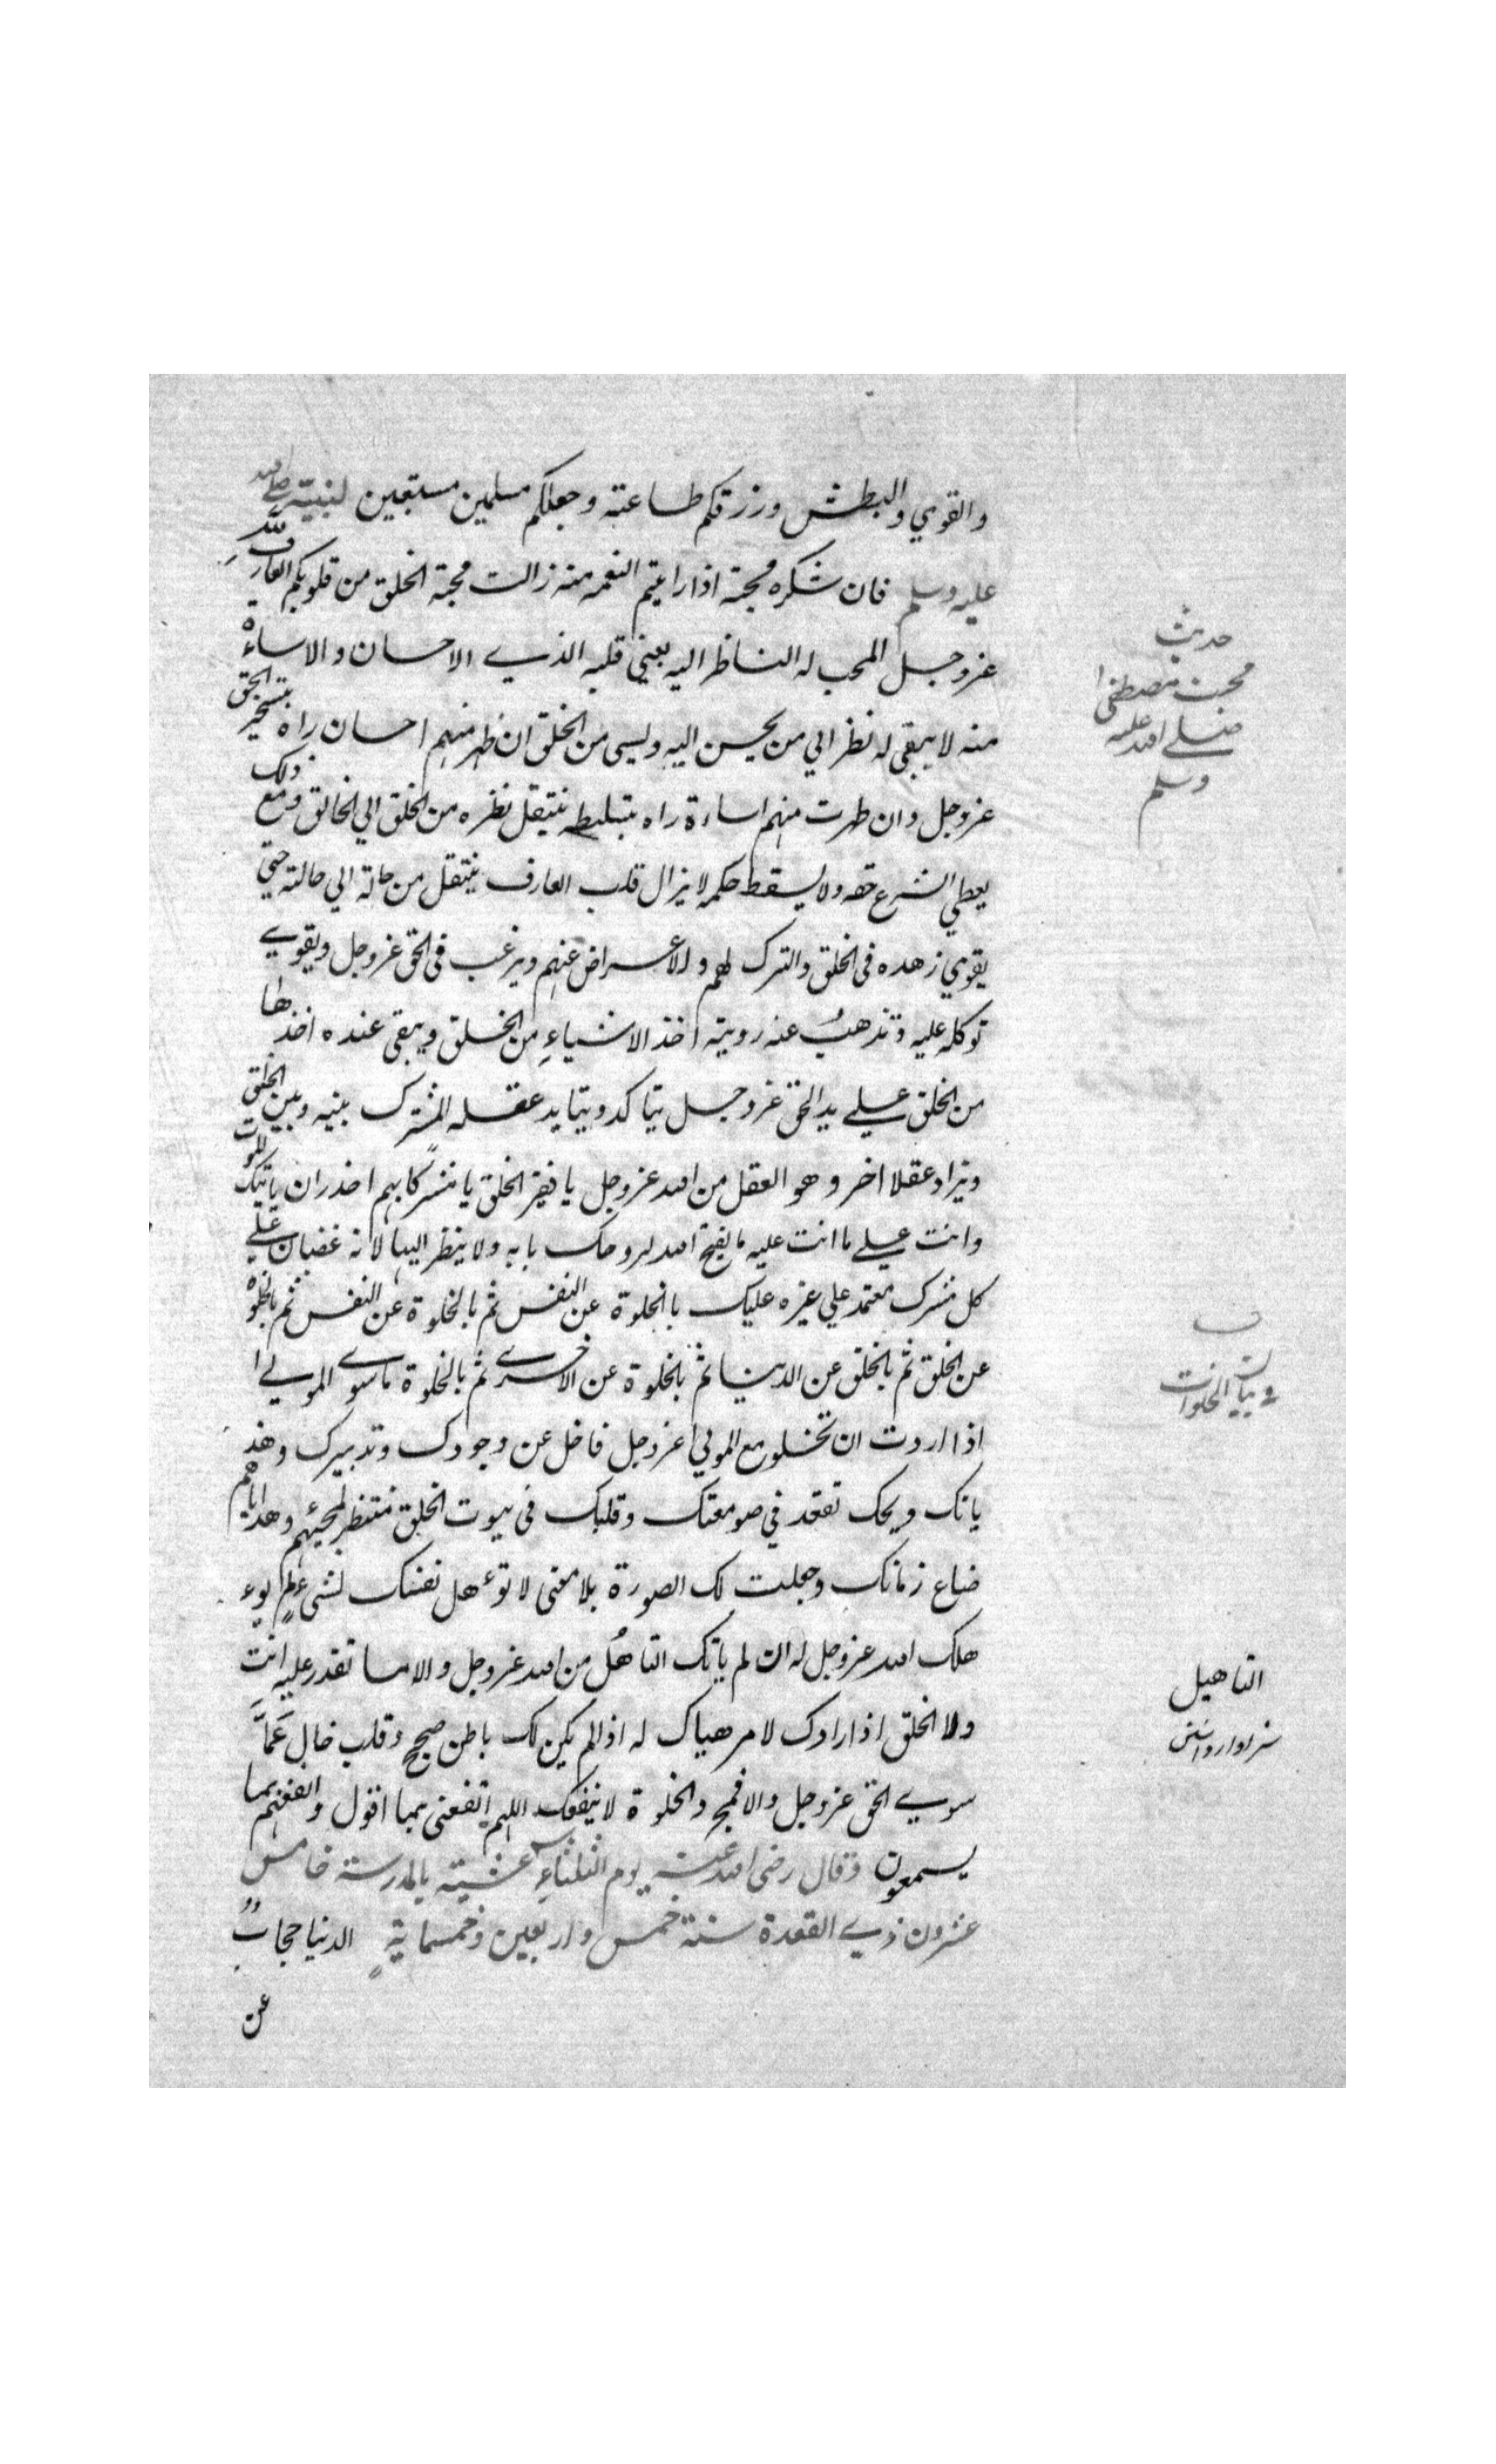 والقوي والبطش ورزقكم طاعته وجعلكم مسلمين مستبعين لنبيته صلي الله
عليه وسلم فان شكره محبة اذا رايتم النعمه منه زالت محبة الخلق من قلوبكم العارف لله
عزوجل المحب له الناظر اليه بعيني قلبه الذي الاحسان والاساءة
منه لا يبقي له نظر الي من يحسن اليه ويسي من الخلق ان ظهر منهم احسان راه بتسخير الحق
عزوجل وان ظهرت منهم اساءة راه بتسليطه ينتقل نظره من الخلق الي الخالق ومع ذلك
يعطي الشرع حقه ولا يسقط حكمه لا يزال قلب العارف ينتقل من حالة الي حالته حتي
يقوي زهده في الخلق والترك لهم والاعراض عنهم ويرغب في الحق عزوجل ويقوي
توكله عليه وتذهب عنه رويته اخذ الاشياء من الخلق ويبقى عنده اخذها
من الخلق علي يد الحق عزوجل يتاكد ويتايد عقله المشترك بينه وبين الخلق
ويزاد عقلا اخر وهو العقل من الله عزوجل يا فقير الخلق يا مشركا بهم احذر ان ياتيك الموت
وانت علي ما انت عليه ما يفتح الله لروحك بابه ولا ينظر اليها لانه غضبان علي
كل مشرك معتمد علي غيره عليك بالخلوة عن النفس ثم بالخلوة عن النفس ثم بالخلوة
عن الخلق ثم بالخلق عن الدنيا ثم بالخلوة عن الاخري ثم بالخلوة ما سوي المولي
اذا اردت ان تخلو مع المولي عزوجل فاخل عن وجودك وتدبيرك وهذ
يانك ويحك تقعد في صومعتك وقلبك في بيوت الخلق منتظر لمجيئهم وهداياهم
ضاع زمانك وجعلت لك الصورة بلا معنى لا توءهل نفسك لشي لم يوء
هلك الله عزوجل له ان لم ياتك التاهل من الله عزوجل والا ما تقدر عليه انت
ولا الخلق اذا ارادك لامر هياك له اذا لم يكن لك باطن صحيح وقلب خال عما
سوي الحق عزوجل والا فمج والخلوة لا ينفعك اللهم انفعني بما اقول وانفعهم بما
يسمعون وقال رضي الله عنه يوم الثلثاء عشية بالمدرسة خامس
عشرون ذي القعدة سنة خمس واربعين وخمسماية الدنيا حجاب
عن
حديث
محبت مصطفى
صلي الله عليه
وسلم
ف
في بيان الخلوات
التاهيل